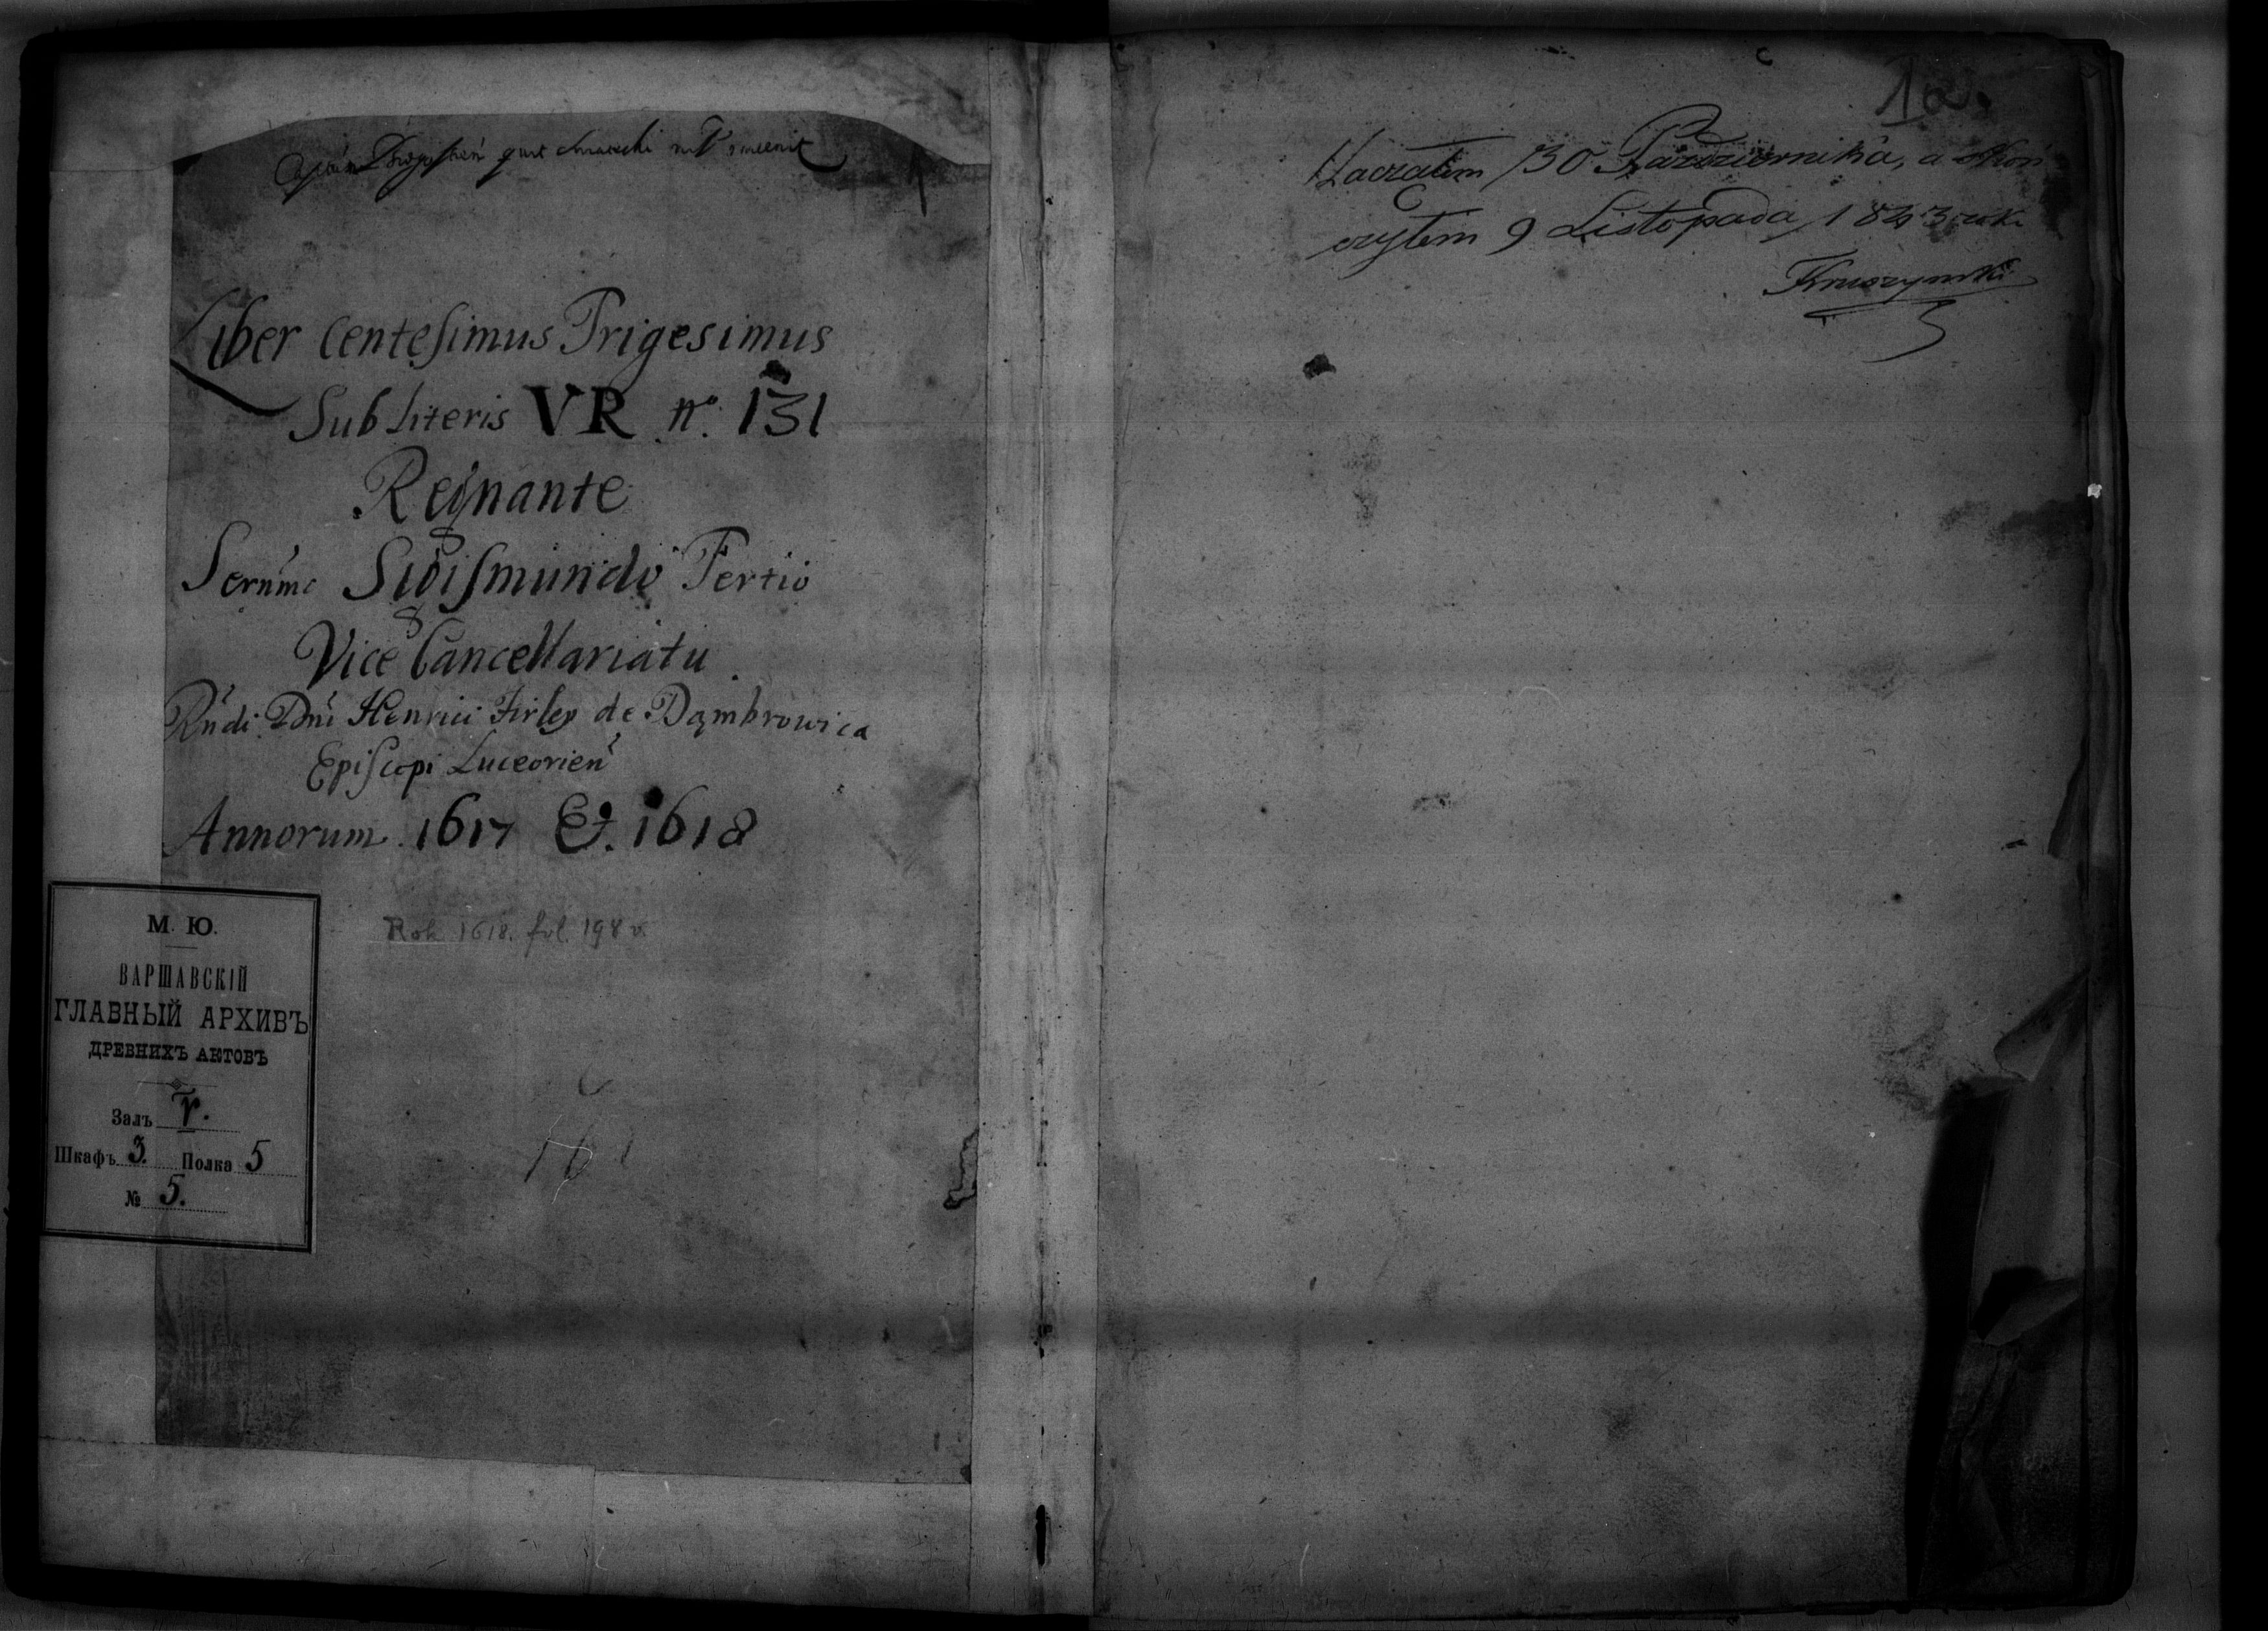 1
Liber Centesimus Trigesimus
Sub Literis VR nº. 131
Regnante
Sernmo Sigismundo Tertio
Vice Cancellariatu
Rndi Dni Henrici Firley de Dąmbrowica
Episcopi Luceorien
Annorum 1617 Et. 1618
Rok 1618. fol. 198 v.
М. Ю.
ВАРШАВСКІЙ
ГЛАВНЫЙ АРХИВЪ
ДРЕВНИХЪ АКТОВЪ
Залъ
Шкафъ 3. Полка 5
№ 5.
1a.
Zacząłem 30 Pazdziernika, a skoń
czyłem 9 Listopada 1843 rok.